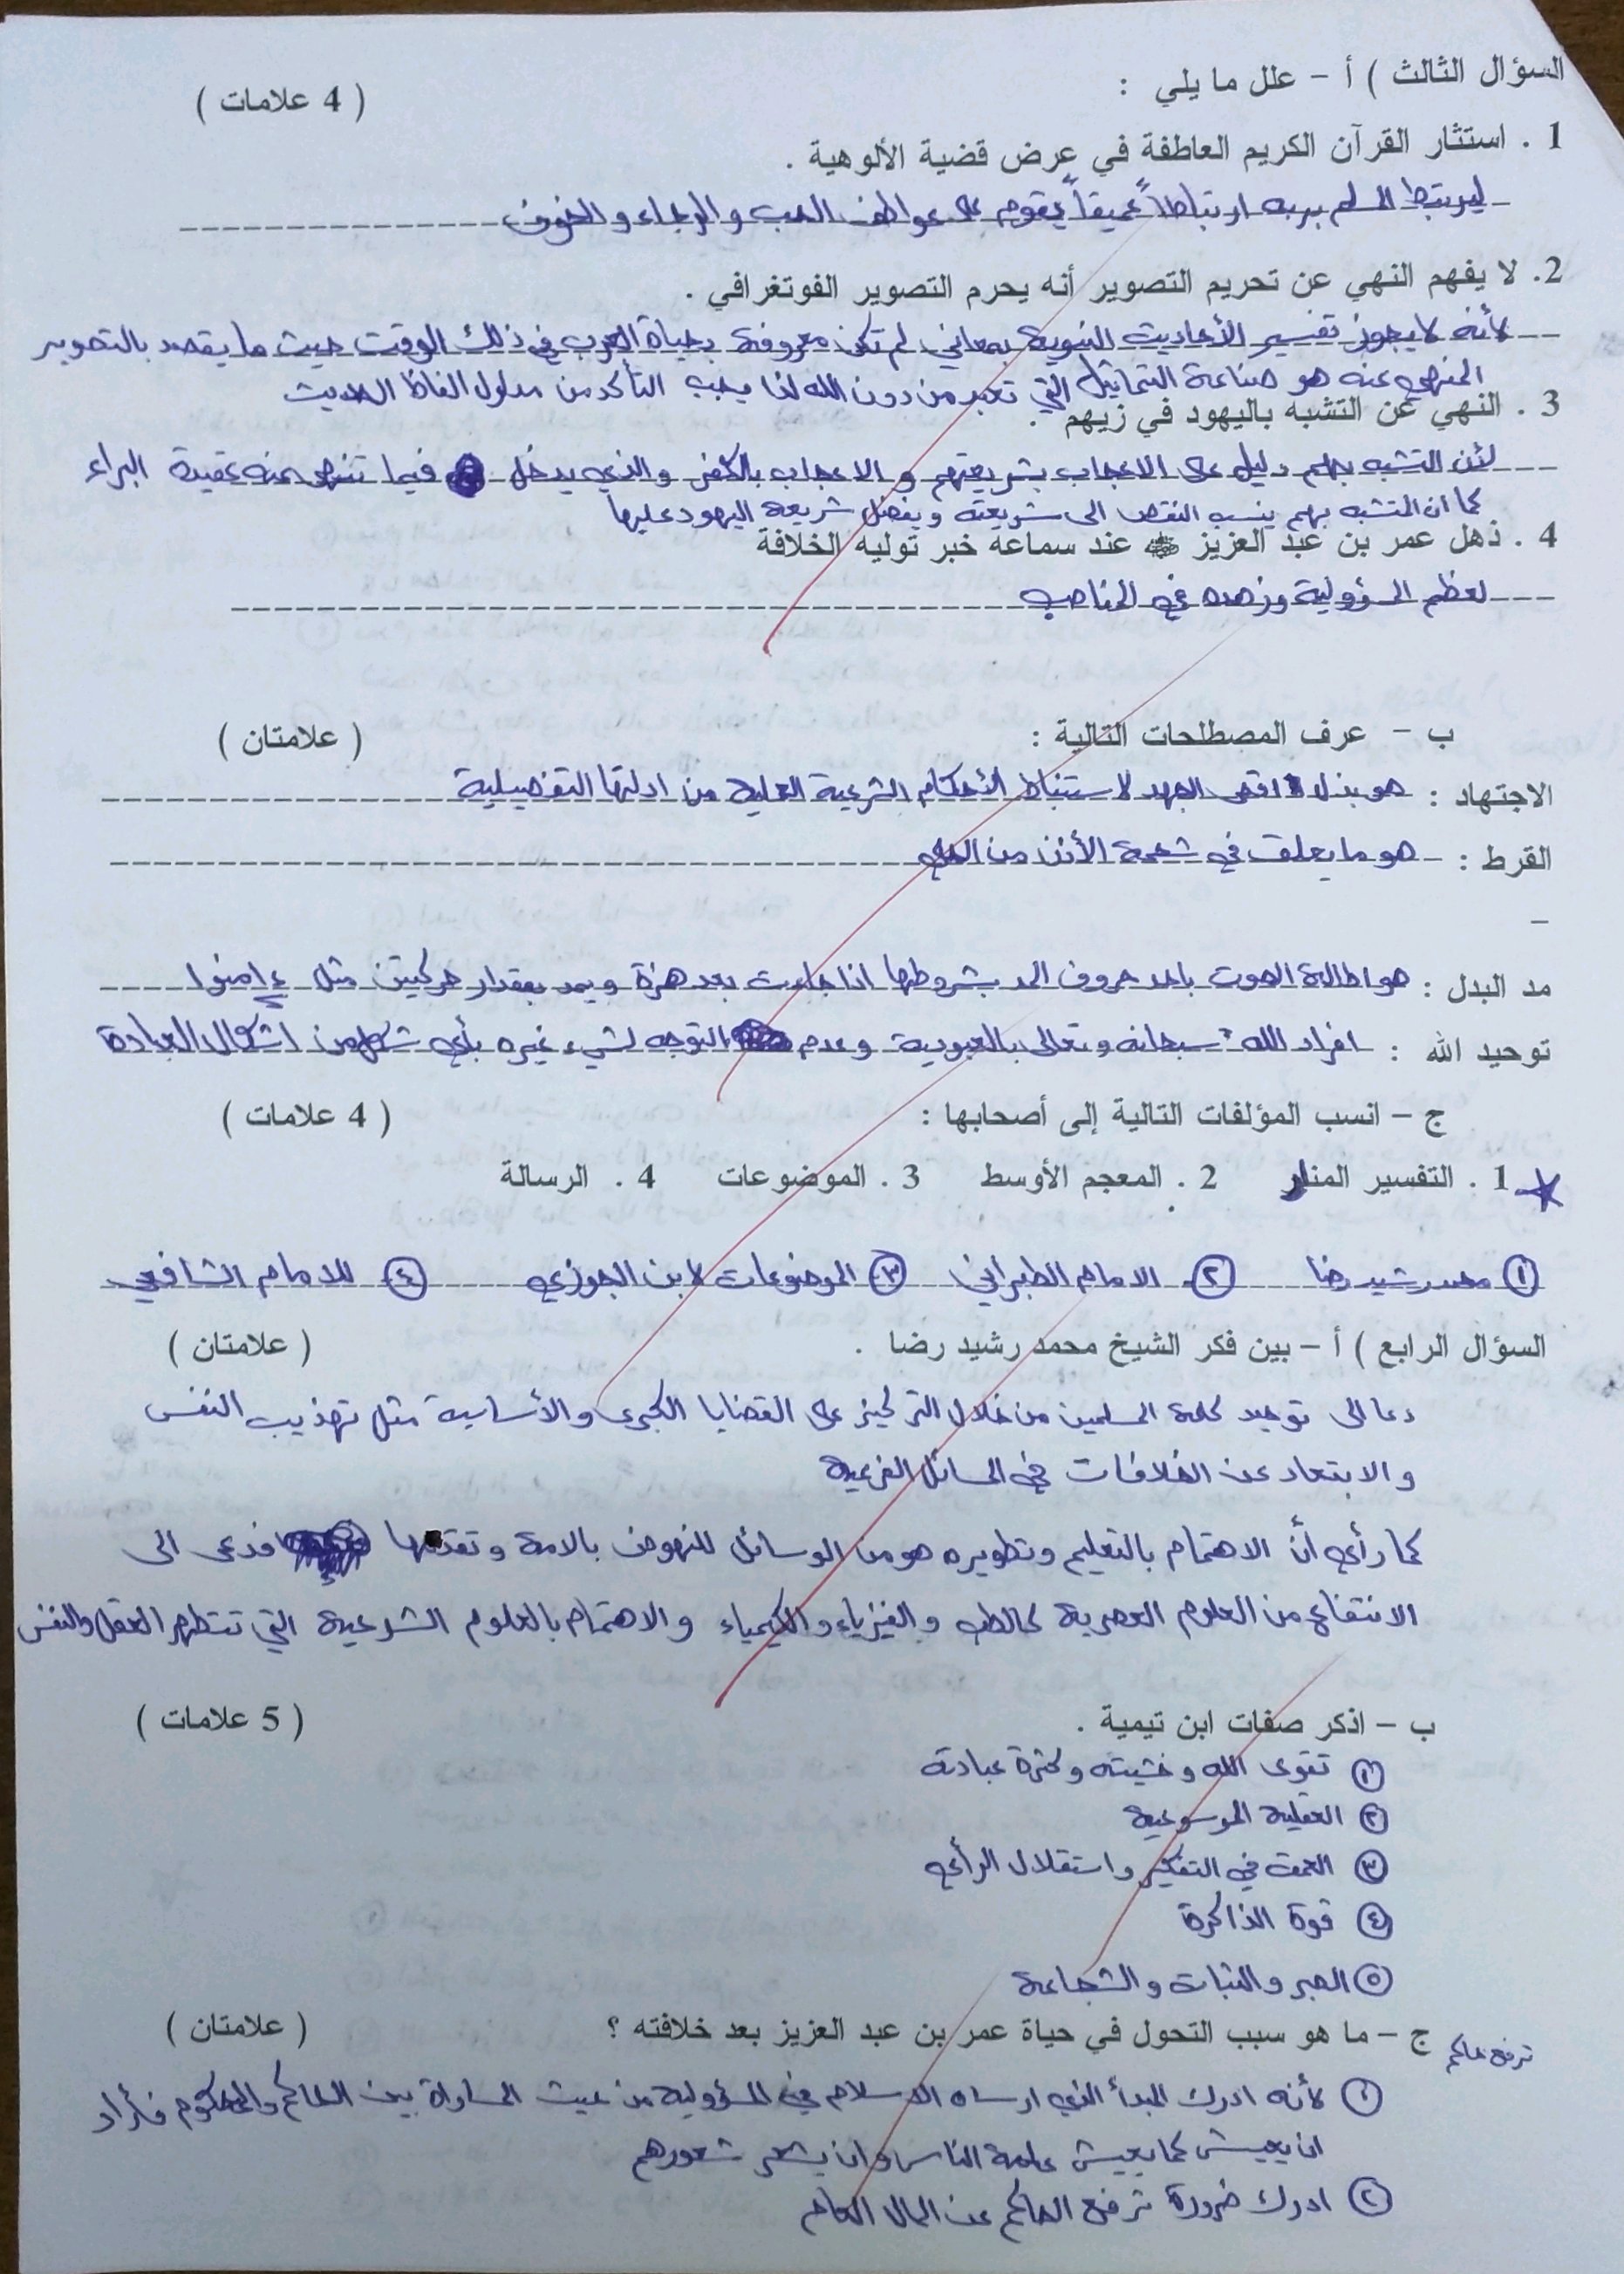 السؤال الثالث ) أ - علل ما يلي : ( 4 علامات )
1 . استثار القرآن الكريم العاطفة في عرض قضية الألوهية .
ليرتبط المسلم بربه ارتباطاً عميقاً يقوم على عواطف الحب والرجاء والخوف
2. لا يفهم النهي عن تحريم التصوير أنه يحرم التصوير الفوتغرافي .
لأنه لا يجوز تفسير الأحاديث النبوية بمعاني لم تكن معروفة بحياة العرب في ذلك الوقت حيث ما يقصد بالتصوير
المنهي عنه هو صناعة التماثيل التي تعبد من دون الله لذا يجب التأكد من مدلول الفاظ الحديث
3 . النهي عن التشبه باليهود في زيهم .
لأن التشبه بهم دليل على الاعجاب بشريعتهم و الاعجاب بالكفر والذي يدخل فيما تنهى عنه عقيدة البراء
كما ان المتشبه بهم ينسب النقص الى شريعته ويفضل شريعة اليهود عليها
4 . ذهل عمر بن عبد العزيز عند سماعه خبر توليه الخلافة
لعظم المسؤولية وزهده في المناصب
ب - عرف المصطلحات التالية : ( علامتان )
الاجتهاد : هو بذل اقصى الجهد لاستنباط الأحكام الشرعية العملية من ادلتها التفصيلية
القرط : هو ما يعلق في شحمة الأذن من الحلي
–
مد البدل : هو اطالة الصوت باحد حروف المد بشروطها اذا جاءت بعد همزة ويمد بمقدار حركتين مثل ءامنوا
توحيد الله : افراد الله سبحانه وتعالى بالعبودية وعدم التوجه لشيء غيره بأي شكل من اشكال العبادة
ج - انسب المؤلفات التالية إلى أصحابها : ( 4 علامات )
1 . التفسير المنار 2 . المعجم الأوسط 3 . الموضوعات 4 . الرسالة
١ محمد رشيد رضا ٢ الامام الطبراني ٣ الموضوعات لابن الجوزي ٤ للامام الشافعي
السؤال الرابع ) أ - بين فكر الشيخ محمد رشيد رضا . ( علامتان )
دعا الى توحيد كلمة المسلمين من خلال التركيز على القضايا الكبرى والأساسية مثل تهذيب النفس
والابتعاد عن الخلافات في المسائل الفرعية
كما رأى أنّ الاهتمام بالتعليم وتطويره هو من الوسائل للنهوض بالامة وتقدمها فدعى الى
الانتفاع من العلوم العصرية كالطب والفيزياء والكيمياء والاهتمام بالعلوم الشرعية التي تتطهر العقل والنفس
ب - اذكر صفات ابن تيمية . ( 5 علامات )
١ تقوى الله وخشيته وكثرة عبادته
٢ العقلية الموسوعية
٣ العمق في التفكير واستقلال الرأي
٤ قوة الذاكرة
٥ الصبر والثبات والشجاعة
ج - ما هو سبب التحول في حياة عمر بن عبد العزيز بعد خلافته ؟ ( علامتان )
ترفع حاكم
١ لأنه ادرك المبدأ الذي ارساه الاسلام في المسؤولية من حيث المساواة بين الحاكم والمحكوم فأراد
ان يعيش كما يعيش عامة الناس وان يشعر شعورهم
٢ ادرك ضرورة ترفع الحاكم عن المال العام